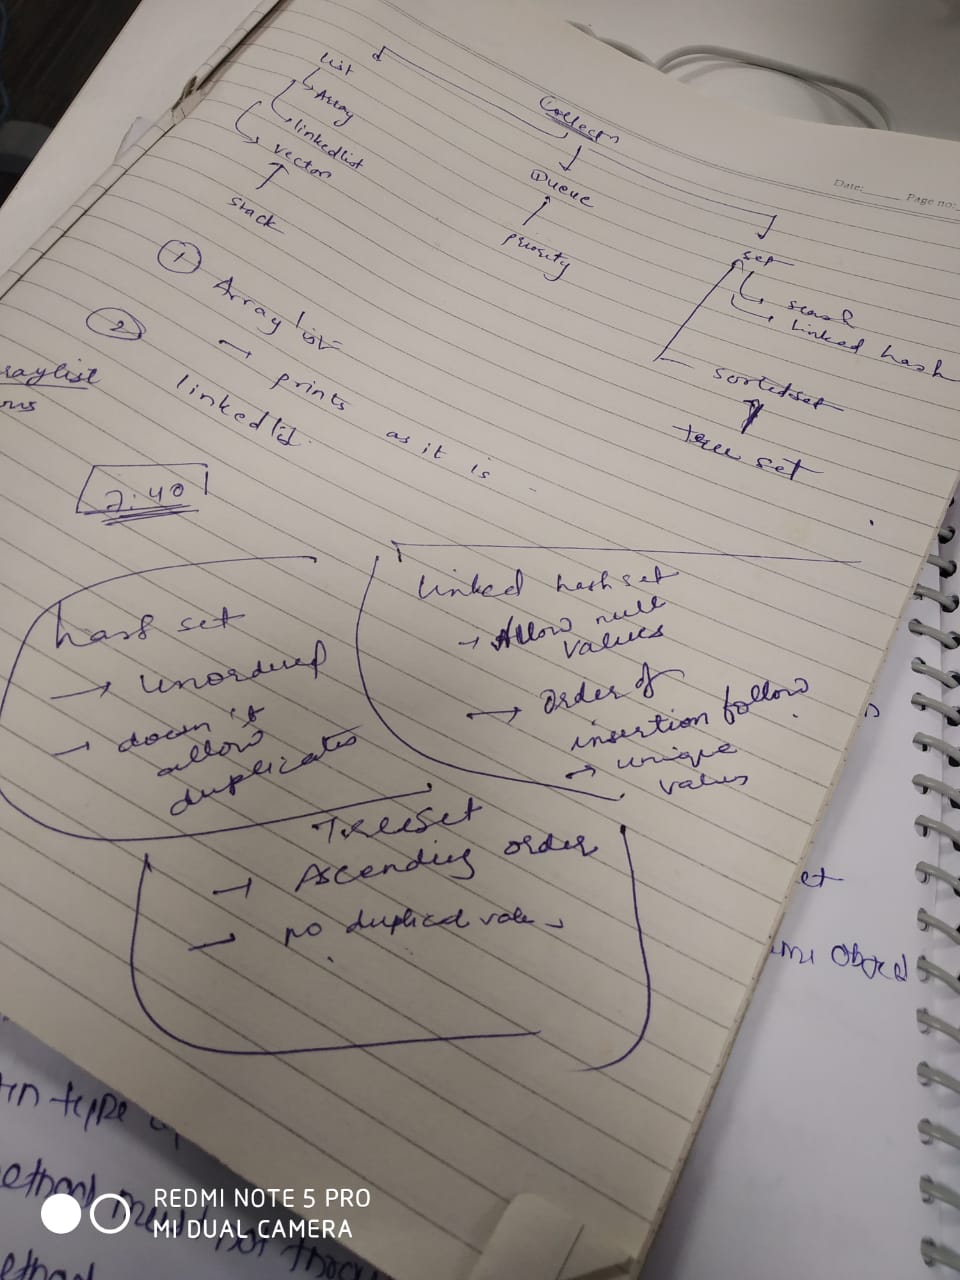 Collectn
List
Array
linkedlist
vector
Stack
Queue
priority
Date:
Page no:
set
Linked hash
sortedset
tree set
1
Array list
→ prints as it is
2
linkedlist
raylist
7:40
hash set
→ Unordered
→ doesn't
allow
duplicates
Linked hashset
→ Allow null
values
→ order of
insertion follow
→ unique
values
TreeSet
→ Ascending order
→ no duplicad vale
et
Object
in type
REDMI NOTE 5 PRO
MI DUAL CAMERA